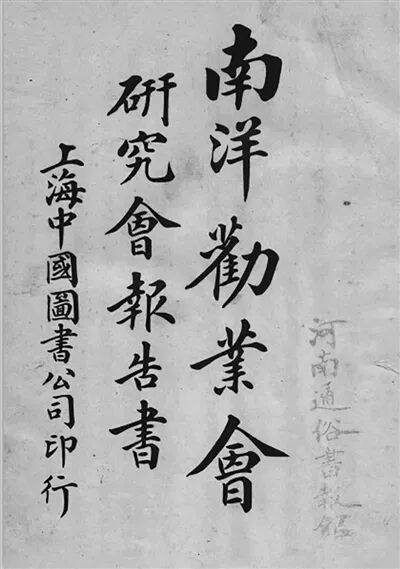 南洋勸業會
研究會報告書
上海中國圖書公司印行
河南通俗書報館